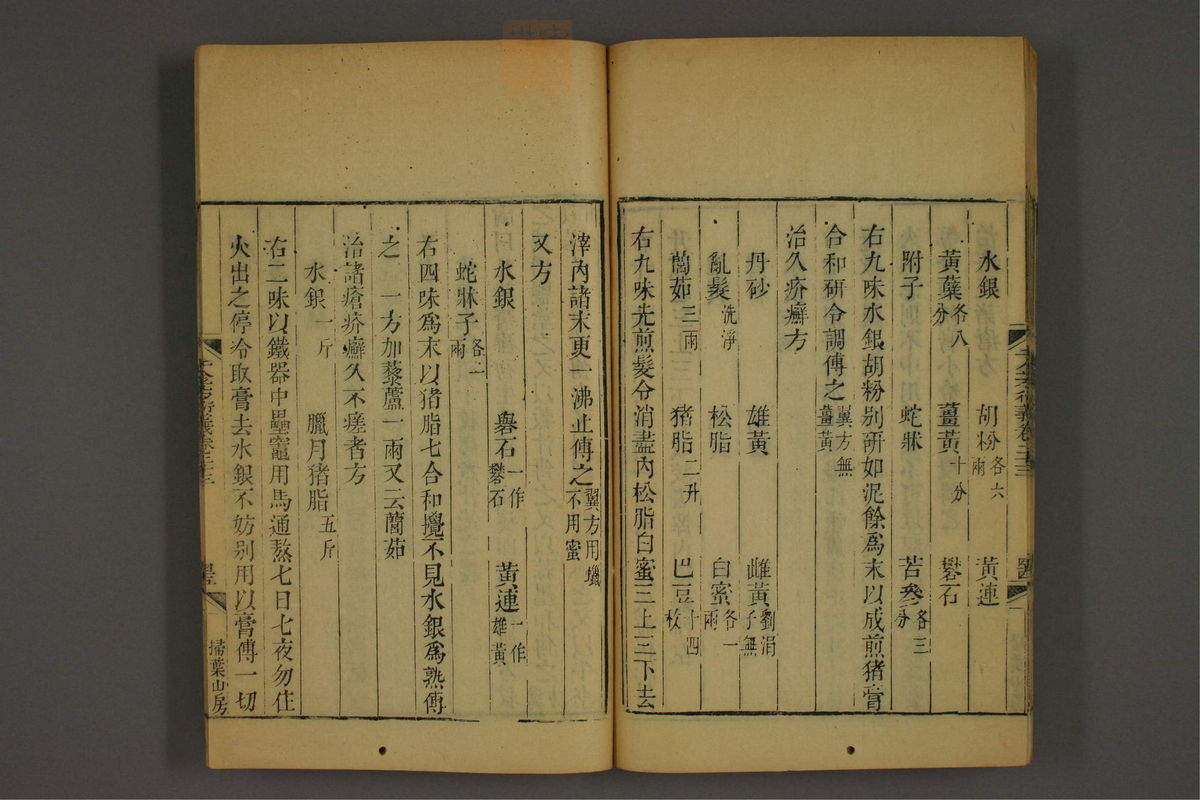 水銀 胡粉各六兩 黃連
黃蘗各八分 薑黃十分 礬石
附子 蛇牀 苦參各三分
右九味水銀胡粉别研如泥餘爲末以成煎猪膏
合和研令調傅之翼方無薑黃
治久疥癬方
丹砂 雄黃 雌黃劉涓子無
亂髮洗淨 松脂 白蜜各一兩
䕡茹三兩 猪脂二升 巴豆十四枚
右九味先煎髮令消盡內松脂白蜜三上三下去
滓內諸末更一沸止傅之翼方用蠟不用蜜
又方
水銀 礜石一作礬石 黃連一作雄黃
蛇牀子各一兩
右四味爲末以猪脂七合和攪不見水銀爲熟傅
之 一方加藜蘆一兩又云䕡茹
治諸瘡疥癬久不瘥者方
水銀一斤 臘月猪脂五斤
右二味以鐵器中壘竈用馬通熬七日七夜勿住
火出之停冷取膏去水銀不妨别用以膏傅一切
千金方衍義卷二十三
掃葉山房